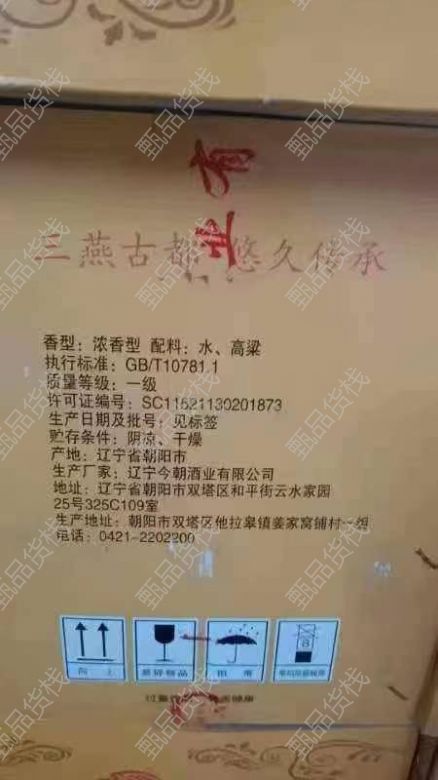 有
业
三燕古都 悠久传承
香型：浓香型 配料：水、高粱
执行标准：GB/T10781.1
质量等级：一级
许可证编号：SC11521130201873
生产日期及批号：见标签
贮存条件：阴凉、干燥
产地：辽宁省朝阳市
生产厂家：辽宁今朝酒业有限公司
地址：辽宁省朝阳市双塔区和平街云水家园
25号325C109室
生产地址：朝阳市双塔区他拉皋镇姜家窝铺村一组
电话：0421-2202200
向上 易碎物品 怕雨
甄品货栈